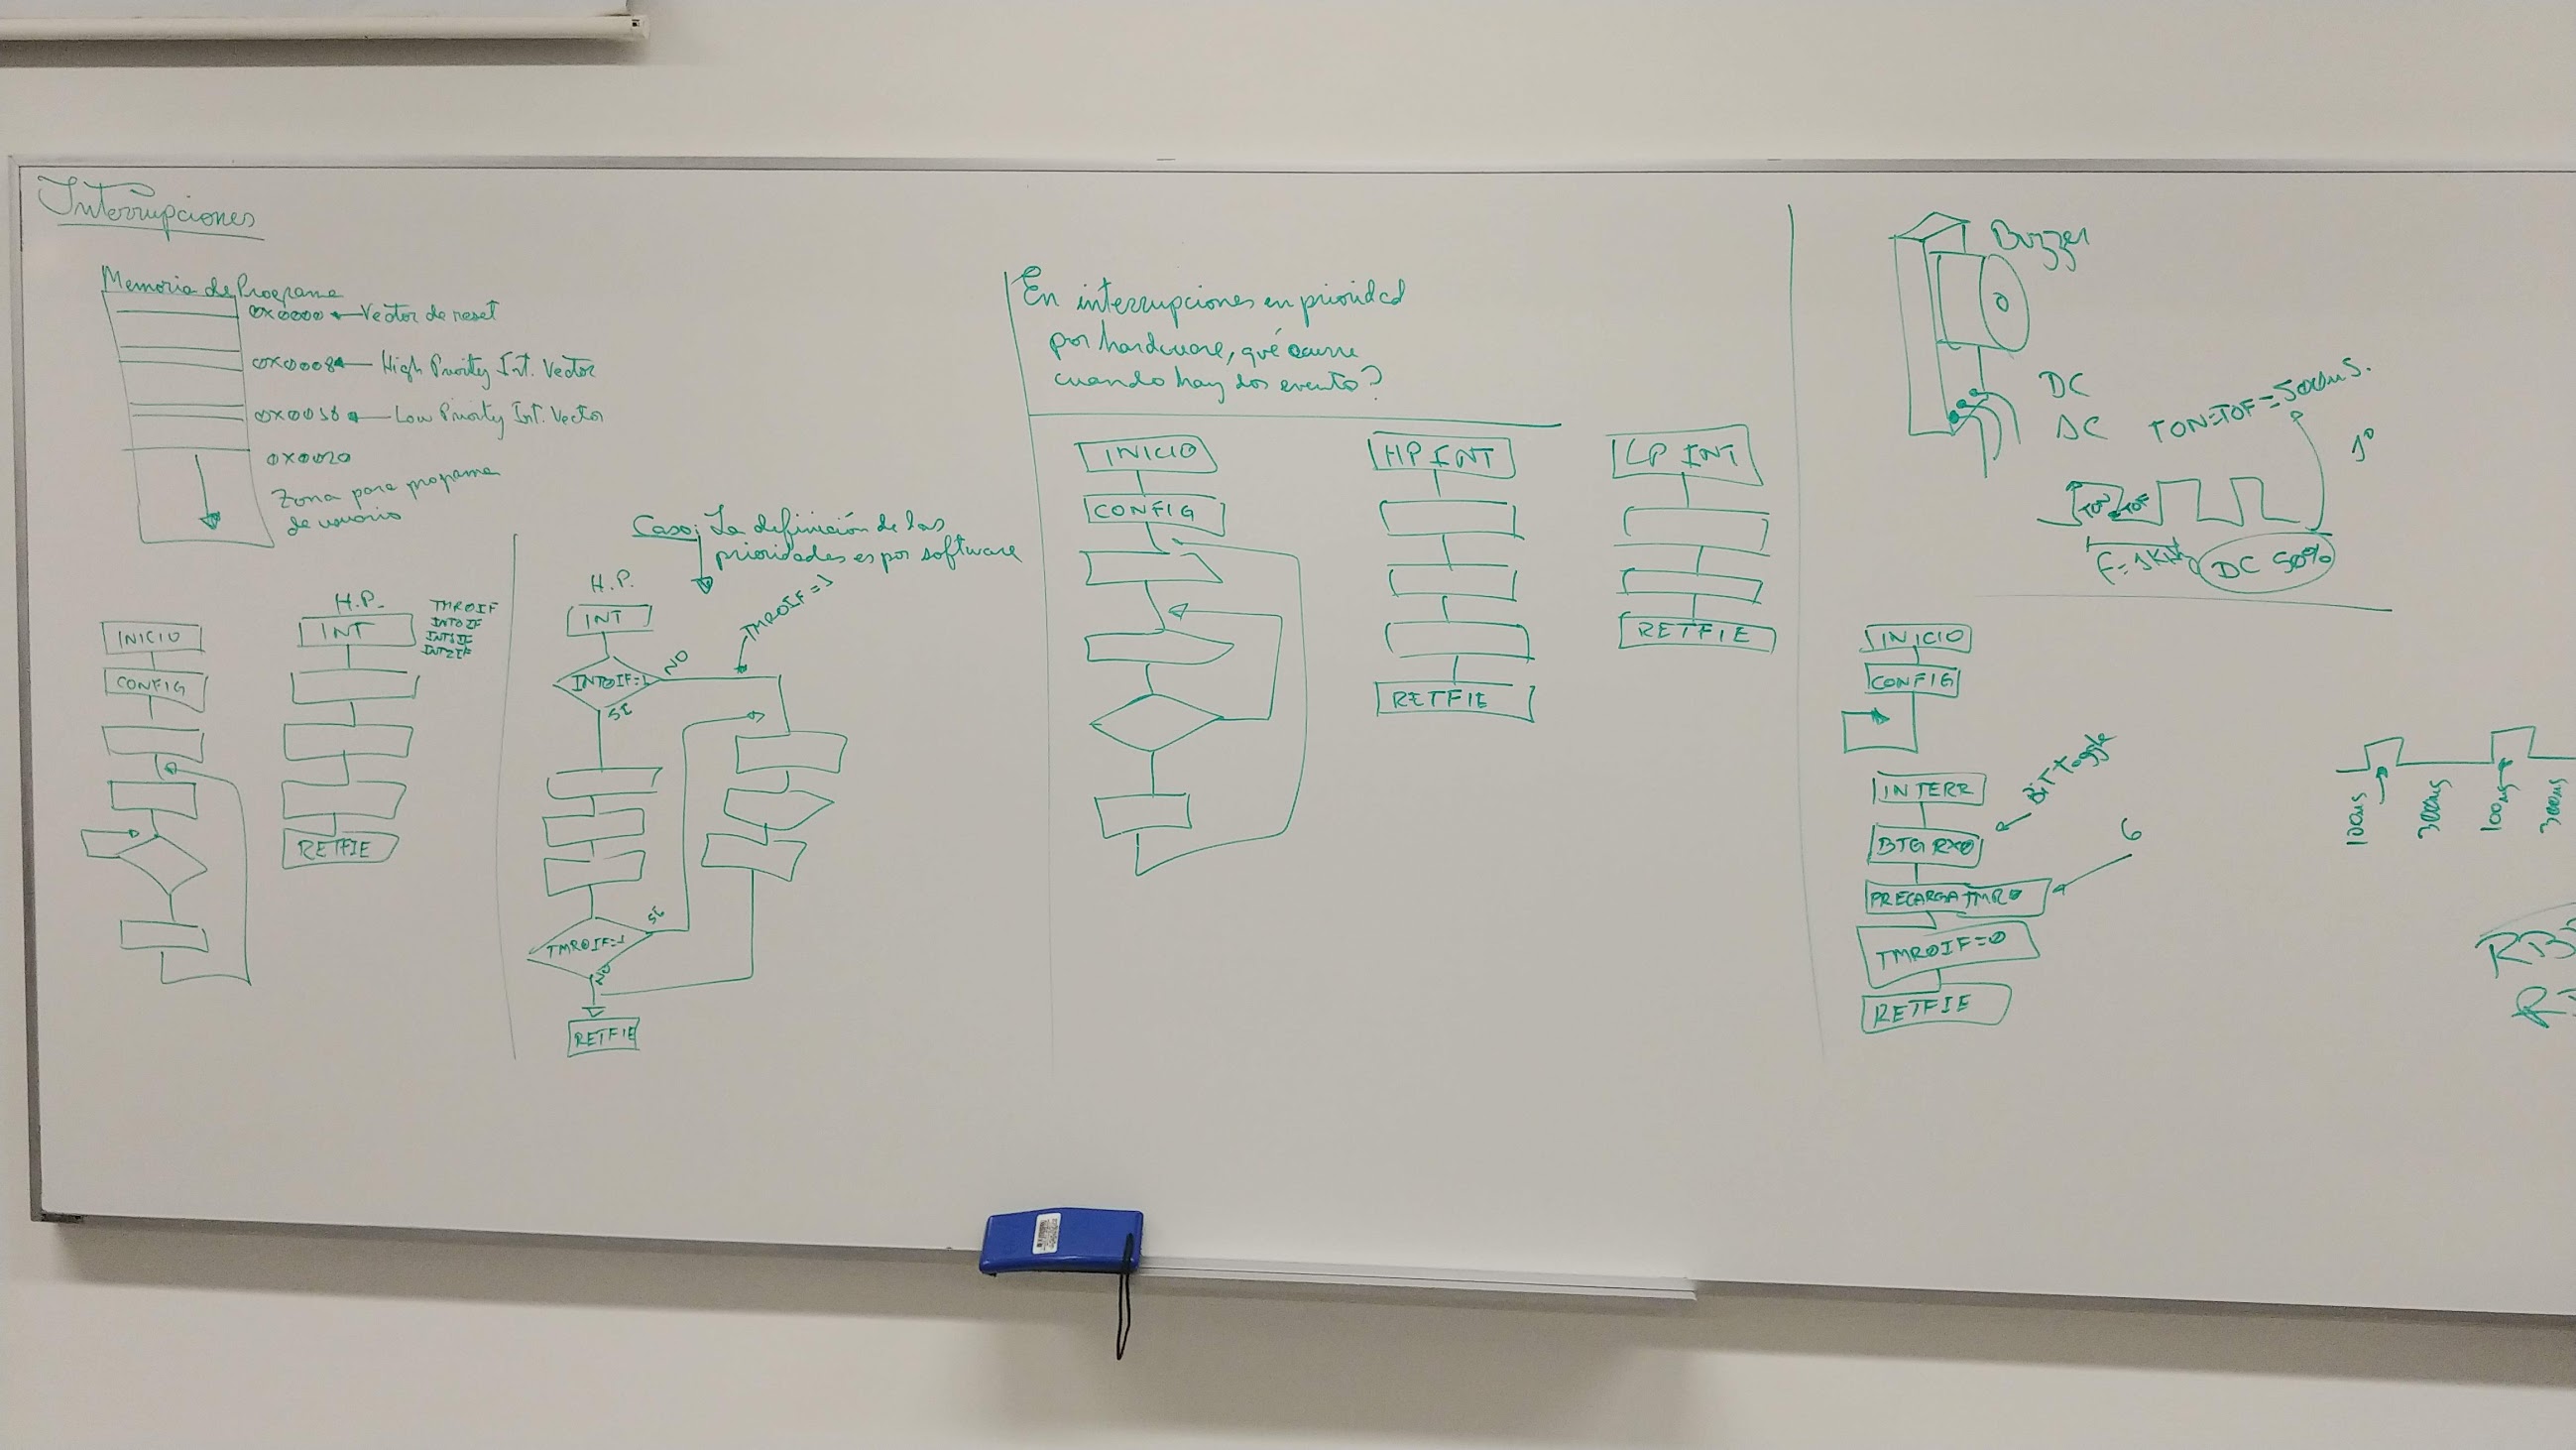 Interrupciones
Memoria de Programa
0x0000 Vector de reset
0x0008 High Priority Int. Vector
Low Priority Int. Vector
0x0020
Zona para programa
de usuario
INICIO
CONFIG
H.P.
INT
TMR0IF
INT0IF
INT1IF
INT2IF
RETFIE
Caso: La definición de las
prioridades es por software
H.P.
INT
TMR0IF=1
INT0IF=1
NO
SI
TMR0IF=1
SI
NO
RETFIE
En interrupciones en prioridad
por hardware, qué ocurre
cuando hay dos evento?
INICIO
CONFIG
HP INT
RETFIE
LP INT
RETFIE
Buzzer
DC
AC
TON=TOF=500us.
1º
TOF
F=1KHz
DC 50%
INICIO
CONFIG
INTERR
BIT toggle
BTG RX0
6
PRECARGA TMR0
TMR0IF=0
RETFIE
100us
300us
100us
300us